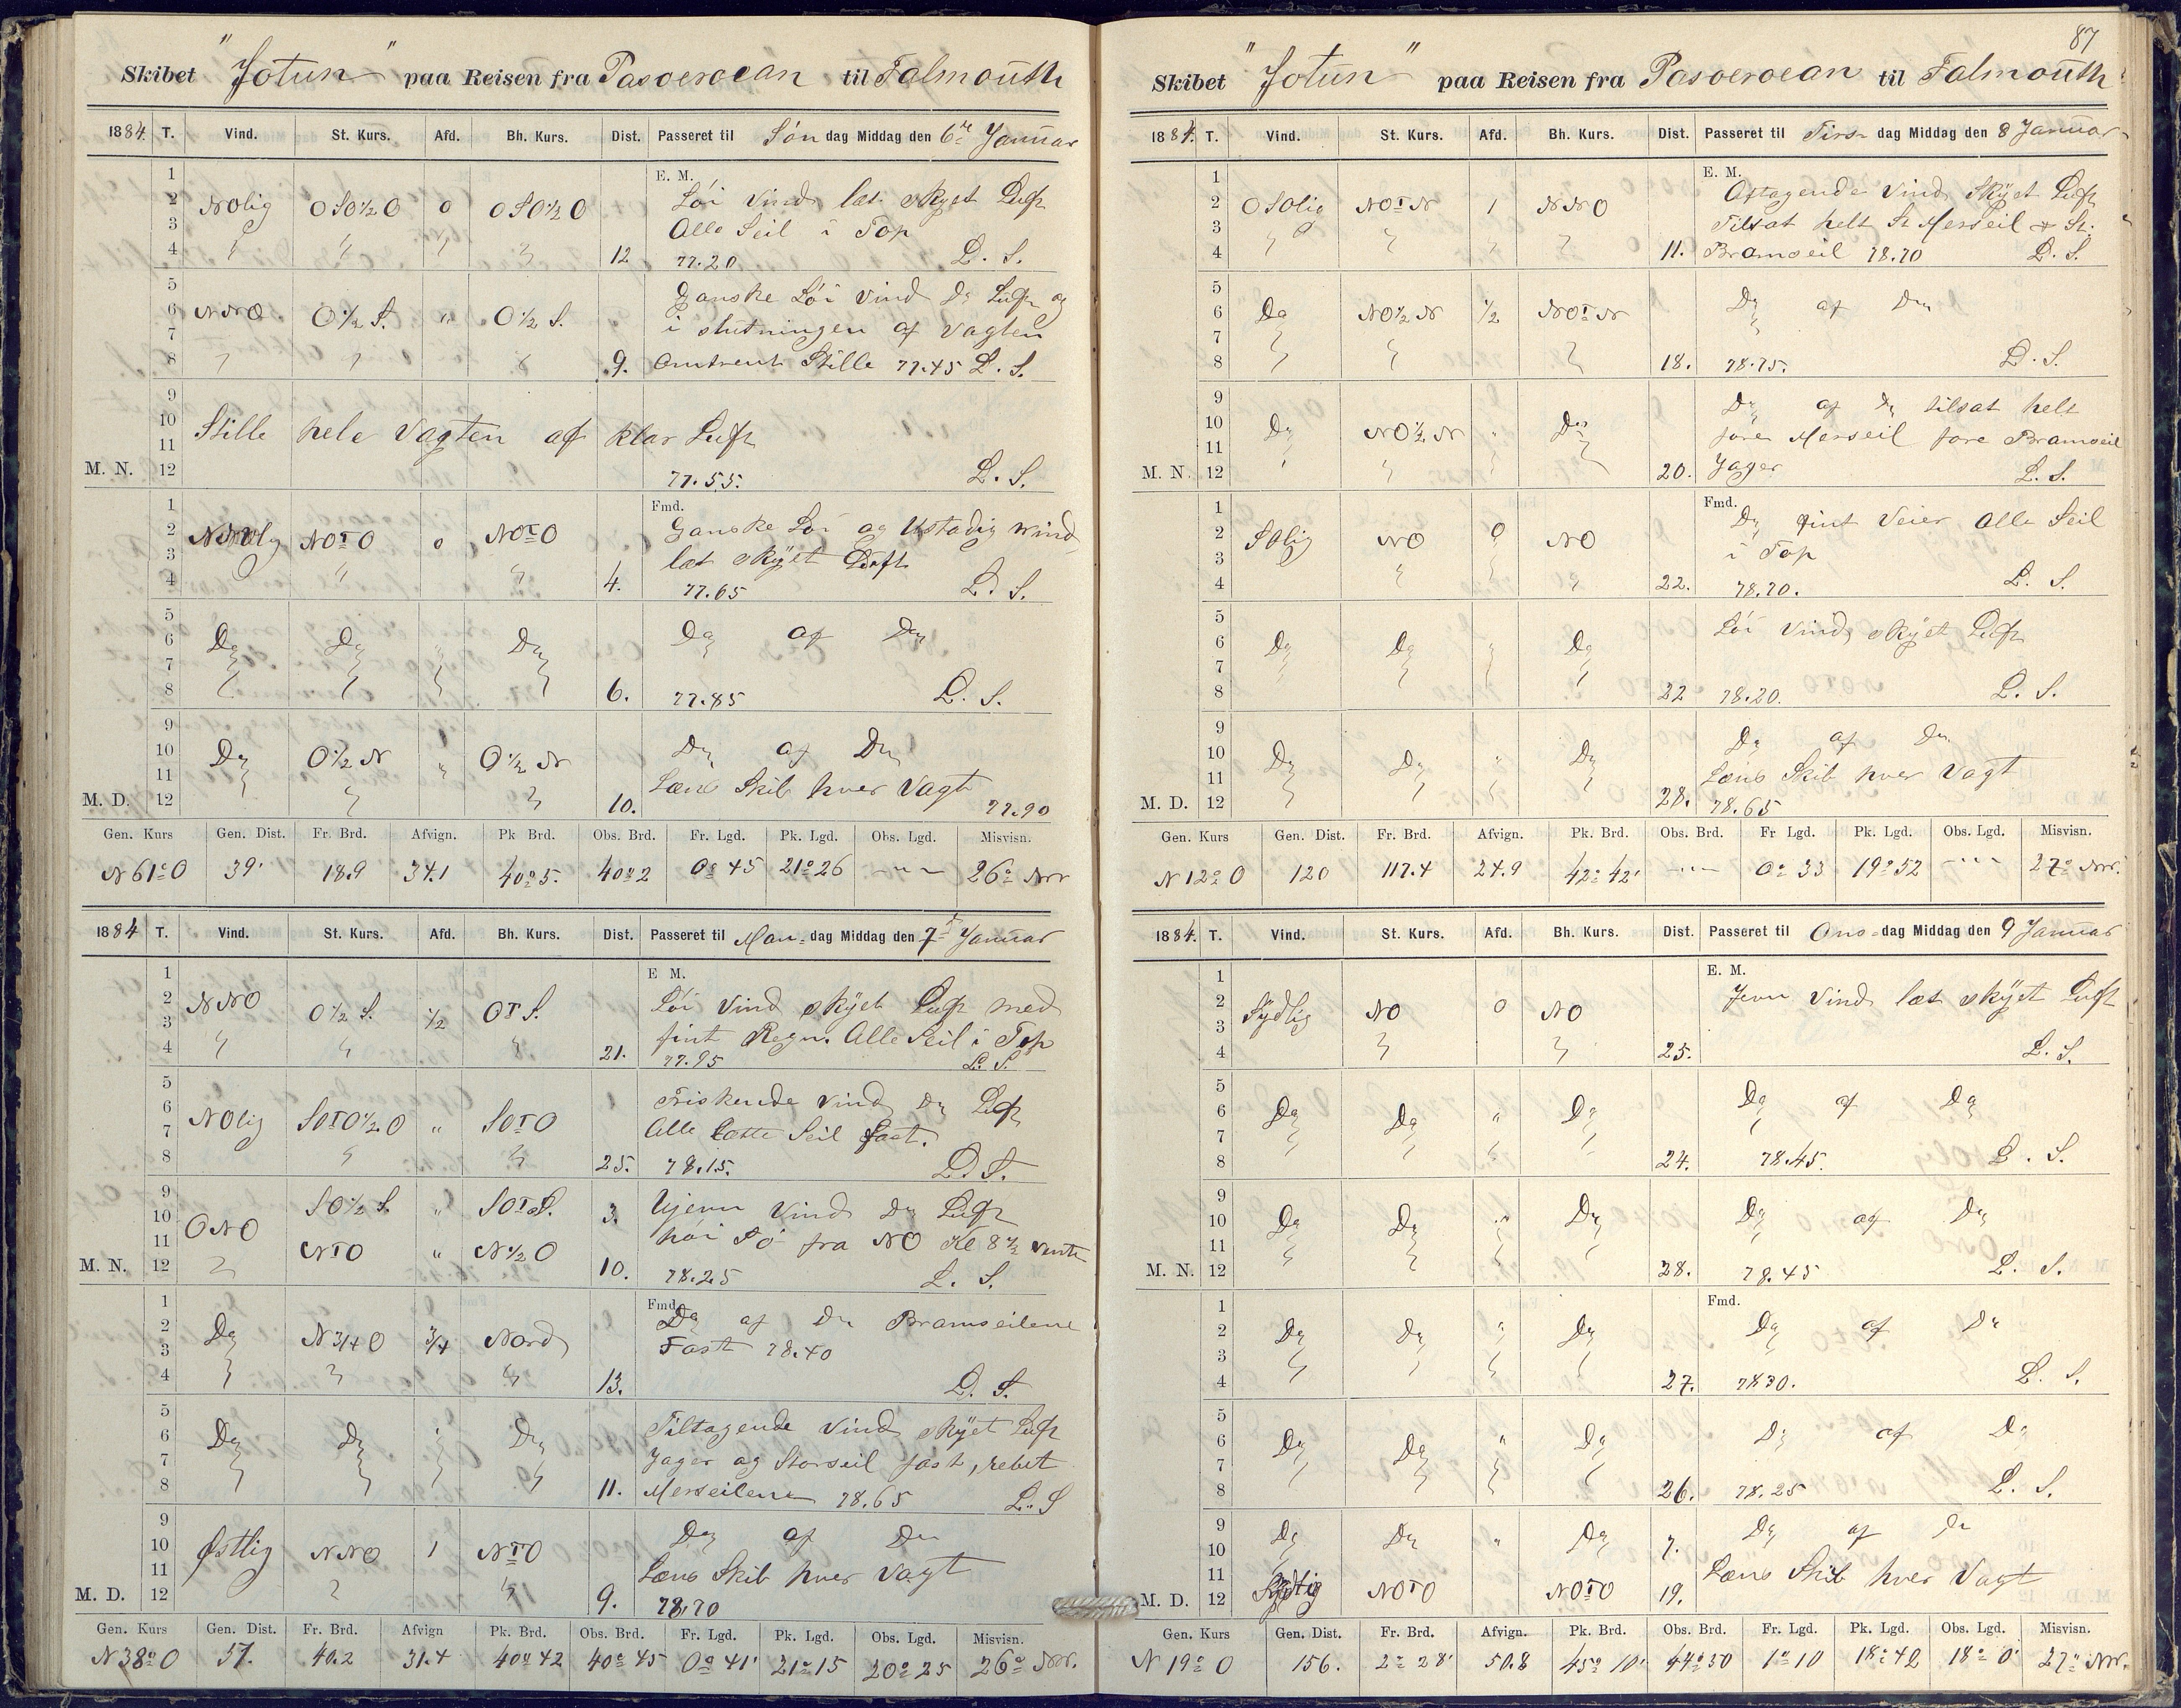 Skibet "Jotun" paa Reisen fra Pasoeroean til Falmouth
1884. T. Vind. St. Kurs. Afd. Bh. Kurs. Dist. Passeret til Søndag Middag den 6te Januar
1 E. M.
2 NOlig OSO½O 0 OSO½O Löi Vind let skyet Luft
3 Alle Seil i Top
4 " " " " 12 77.20 L. S.
5 Ganske Löi Vind Do Luft og
6 NNO. O½S. " O½S. i slutningen af Vagten
7
8 " " " 9. omtrent Stille 77.45 L. S.
9
10 Stille hele Vagten af klar Luft
11
M. N. 12 77.55. L. S.
1 Fmd. Ganske Löi og Ustadig Vind
2 NOTO 0 NOTO
3 let skÿet Luft
4 " " 4. 77.65 L. S.
5
6 Do Do " Do Do af Do
7
8 6. 77.85 L. S.
9
10 Do O½N " O½N Do af Do
11 Læns Skib hver Vagt
M. D. 12 " " 10. 77.90
Gen. Kurs Gen. Dist. Fr. Brd. Afvign. Pk Brd. Obs. Brd. Fr. Lgd. Pk. Lgd. Obs. Lgd. Misvisn.
N 61° O 39' 18.9 34.1 40° 5. 40° 2 0° 45 21° 26 - " - 26° NW
1884 T. Vind. St. Kurs. Afd. Bh. Kurs. Dist. Passeret til Man- dag Middag den 7de Januar
1 E M.
2 NNO O½S. ½ OTS. Löi Vind skÿet Luft med
3 fint Regn. Alle Seil i Top
4 " " " 21. 77.95 L. S.
5
6 Friskende Vind Do Luft
7 NOlig SOTO½O " SOTO Alle Lette Seil fast.
8 " " 25. 78.15. L. S.
9 SO½S. " SOTS. 3. Ujevn Vind Do Luft
10 ONO
11 NTO " N½O höi Sö fra NO Kl 8½ vendte
M. N. 12 " 10. 78.25 L. S.
1 Fmd. Do af Do Bramseilene
2 Do N¾O ¾ Nord Fast 78.40
3
4 " " " 13. L. S.
5 Tiltagende Vind skÿet Luft
6 Do Do " Do
7 Jager og Storseil fast, rebet
8 11. Merseilene 78.65 L. S
9
10 Østlig NNO 1 NTO Do af Do
11 Læns Skib hver Vagt
M. D. 12 " " 9. 78.70
Gen. Kurs Gen. Dist. Fr. Brd. Afvign Pk. Brd. Obs. Brd. Fr. Lgd. Pk. Lgd. Obs. Lgd. Misvisn.
N 38° O 51. 40.2 31.4 40° 42 40° 45 0° 41' 21° 15 20° 25 26° NW.
87
Skibet "Jotun" paa Reisen fra Pasoeroean til Falmouth
1884. T. Vind. St. Kurs. Afd. Bh. Kurs. Dist. Passeret til Tirsdag Middag den 8 Januar
1 E. M.
2 OSOlig NOTN 1 NNO Aftagende Vind Skÿet Luft
3 Tilsat helt St Merseil & St.
4 " " " " 11. Bramseil 78.70 L. S.
5
6 Do NO½N ½ NOTN Do af Do
7
8 18. 78.75. L. S.
9
10 Do NO¼N " Do Do af Do tilsat helt
11 fore Merseil fore Bramseil
M. N. 12 20. Jager L. S.
1 Fmd.
2 SOlig NO 0 NO Do fint Veier Alle Seil
3 i Top
4 " " 22. 78.70. L. S.
5
6 Do Do " Do Löi Vind skÿet Luft
7
8 22 78.20. L. S.
9
10 Do Do " Do Do af Do
11 Læns Skib hver Vagt
M. D. 12 28. 78.65
Gen. Kurs Gen. Dist. Fr. Brd. Afvign. Pk. Brd. Obs. Brd. Fr Lgd. Pk. Lgd. Obs. Lgd. Misvisn.
N 12° O 120 117.4 24.9 42° 42' - " - 0° 33 19° 52 - " - 27° NW.
1884. T. Vind. St. Kurs. Afd. Bh. Kurs. Dist. Passeret til Ons- dag Middag den 9 Januar
1 E. M.
2 Sÿdlig NO 0 NO Jevn Vind let skÿet Luft
3
4 " " 25. L. S.
5
6 Do Do " Do Do af Do
7
8 24. 78.45. L. S.
9
10 Do Do " Do Do af Do
11
M. N. 12 28. 78.45 L. S.
1 Fmd.
2 Do Do " Do Do af Do
3
4 27. 78 30. L. S.
5
6 Do Do " Do Do af Do
7
8 26. 78.25 L. S.
9 Do Do " Do 7. Do af Do
10
11 Læns Skib hver Vagt
M. D. 12 NOTO NOTO 19.
Gen. Kurs Gen. Dist. Fr. Brd. Afvign. Pk. Brd. Obs. Brd. Fr. Lgd. Pk. Lgd. Obs. Lgd. Misvisn.
N 19° O 156. 2° 28' 50.8 45° 10' 44° 50 1° 10 18° 42 18° 0' 27° NW.